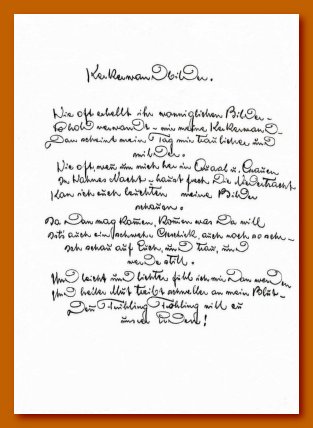 Kerkerwand Bilder.
Wie oft erhellt ihr wonniglichen Bilder –
So hold verwandt – mir meine Kerkerwand –
Dann scheint mein Tag mir traulicher und
milder.
Wie oft, wenn um mich her in Quaal u. Grauen
In Wahnes Nacht – haust frech Die Niedertracht
Kan ich euch leuchten meine Bilder
schauen.
Da Dan mag komen, komen was Da will
sei's auch ein schweres Geschick, auch noch so sehr –
Ich schau auf Euch, und trau, und
werde still.
Und leicht und lichter fühl ich mir Dan werden
Und heiler Mut treibt schneller an mein Blut –
Den Frühling Frühling will zu
unser Erden!